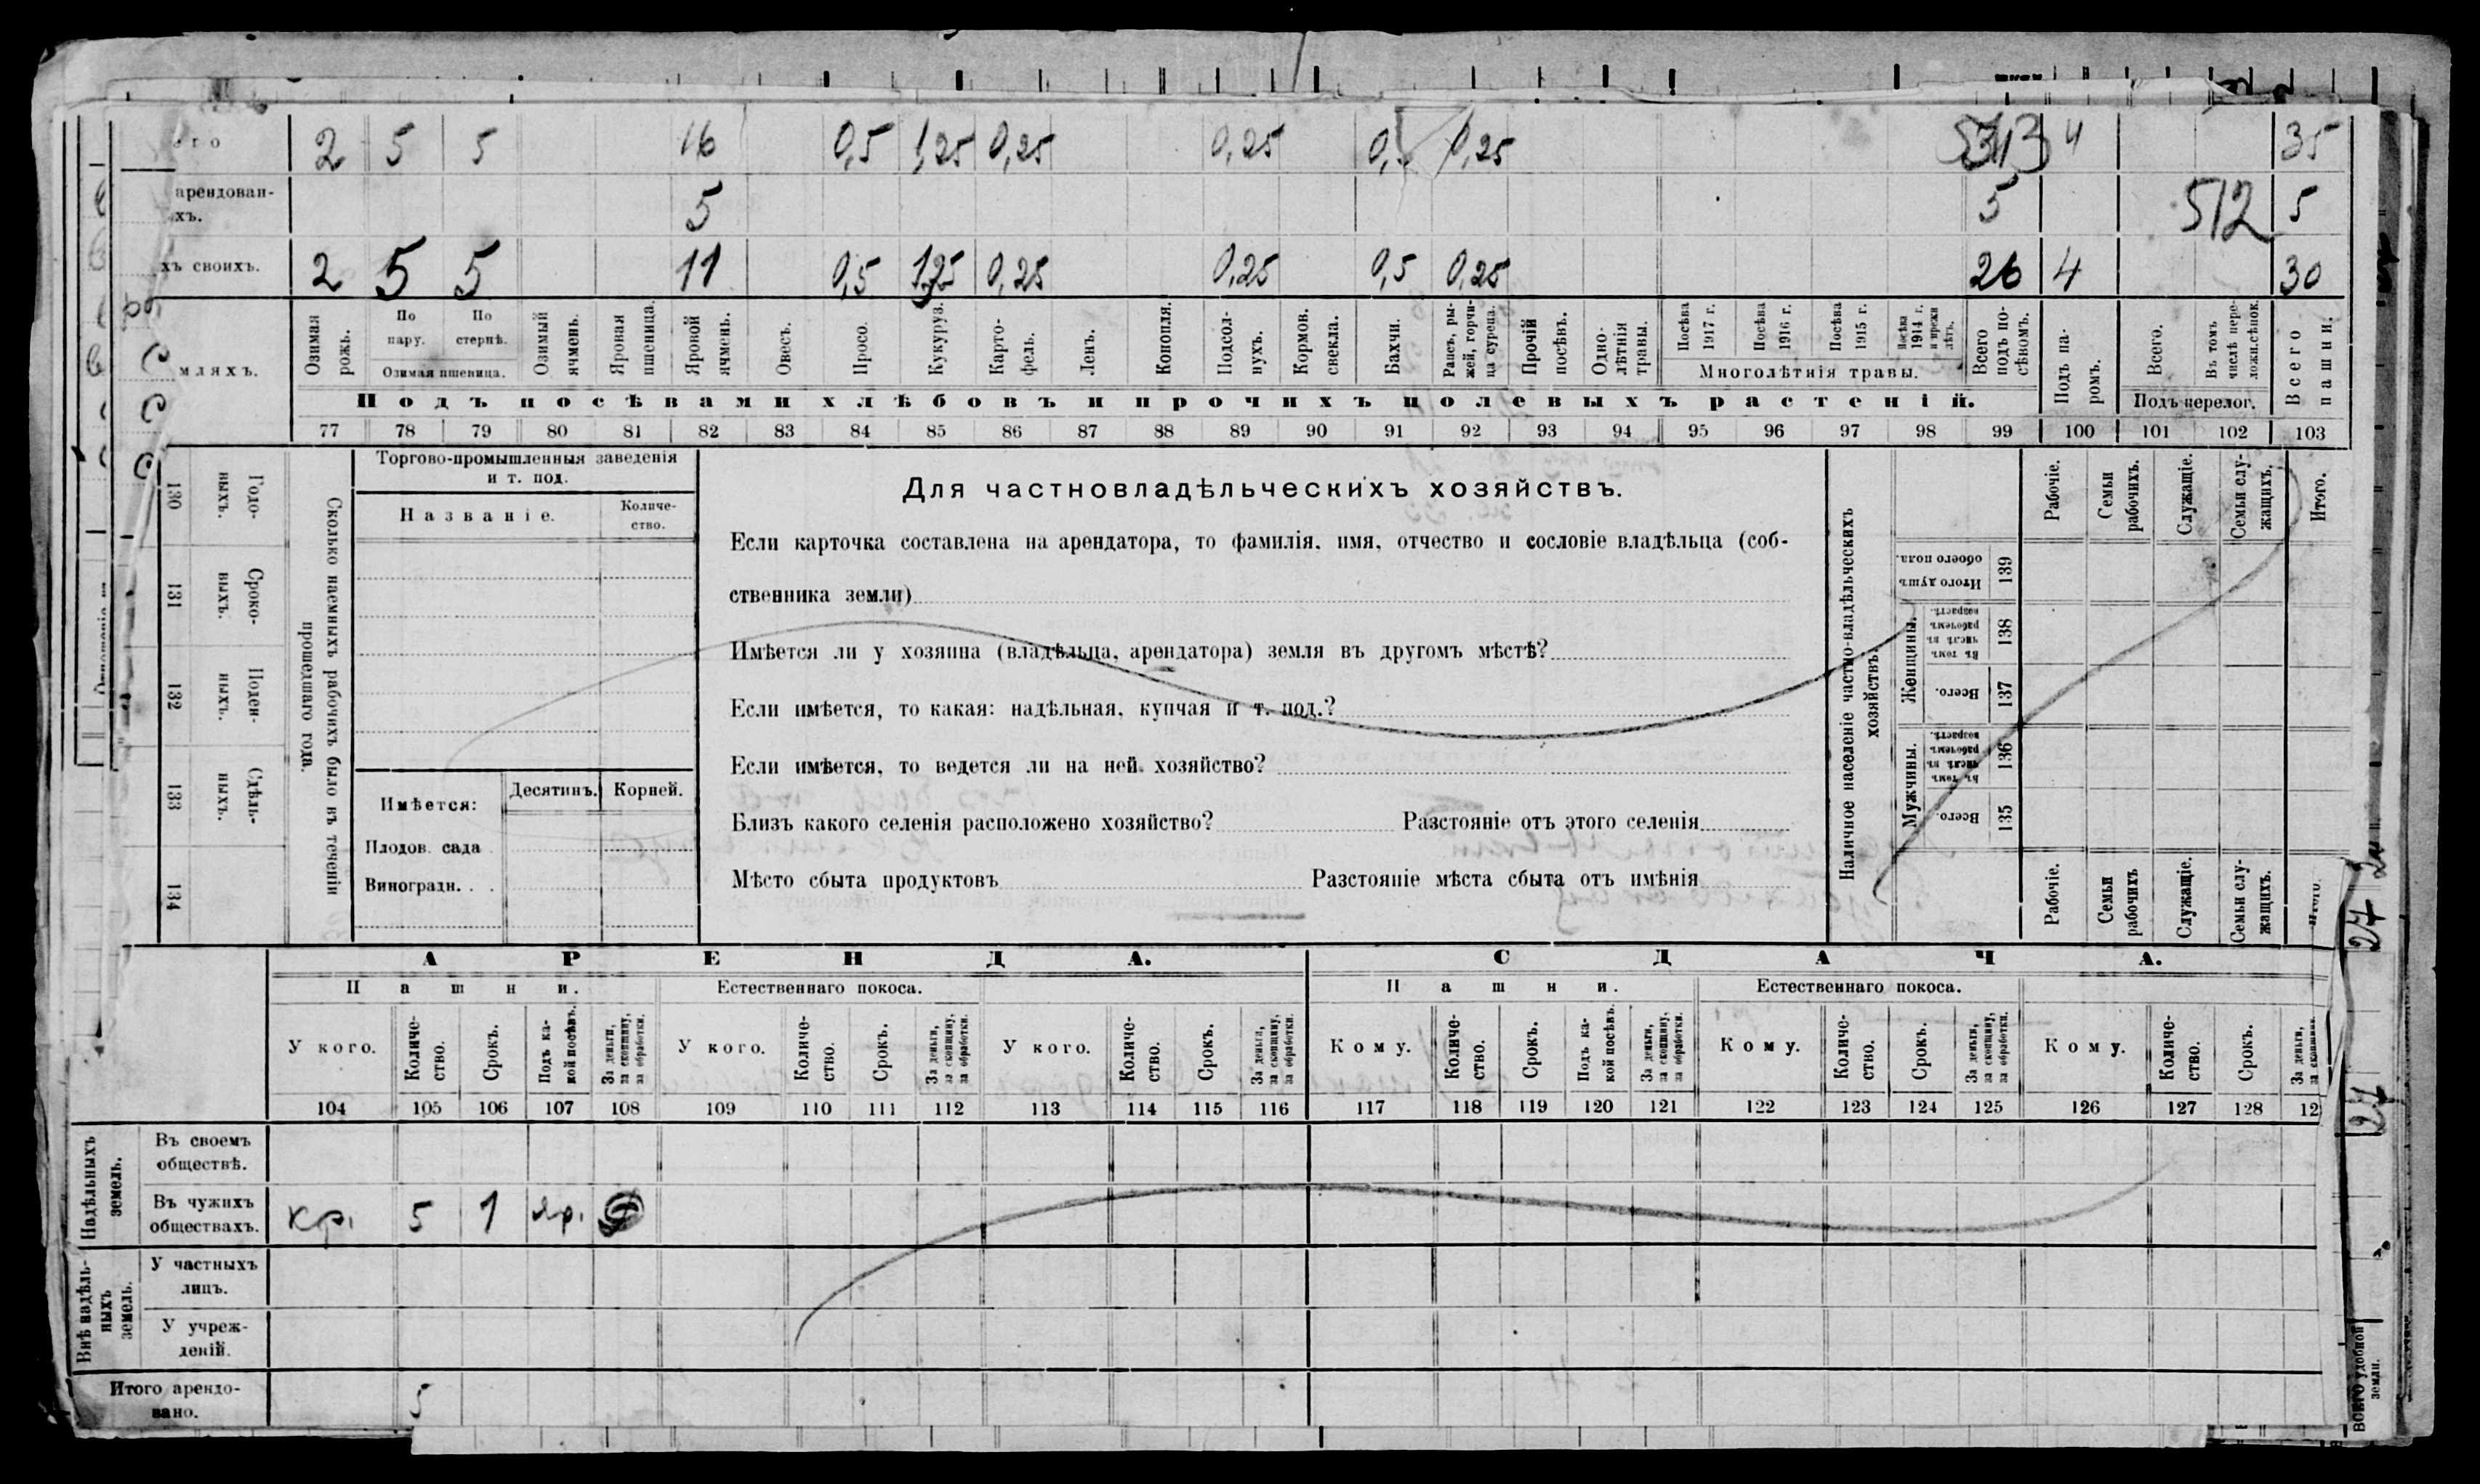 2 5 5 16 0,5 1,25 0,25 0,25 0,25 4 35
арендован-
хъ. 5 5 512 5
хъ своихъ. 2 5 5 11 0,5 1,25 0,25 0,25 0,5 0,25 26 4 30
мляхъ.
Озимая рожь.
По пару.
По стернѣ.
Озимая пшеница.
Озимый ячмень.
Яровая пшеница.
Яровой ячмень.
Овесъ.
Просо.
Кукуруз.
Карто-
фель.
Ленъ.
Конопля.
Подсол-
нухъ.
Кормов. свекла.
Бахчи.
Рапсъ, ры-
жей, горчи-
ца сурепа.
Прочій посѣвъ.
Одно-
лѣтнія травы.
Посѣва 1917 г.
Посѣва 1916 г.
Посѣва 1915 г.
Посѣва 1914 г. и преж лѣтъ.
Многолѣтнія травы.
Всего подъ по-
сѣвомъ.
Подъ па-
ромъ.
Всего.
Въ томъ числѣ пере-
ложн.сѣнок.
Подъ перелог.
Всего пашни.
Подъ посѣвами хлѣбовъ и прочихъ полевыхъ растеній.
77 78 79 80 81 82 83 84 85 86 87 88 89 90 91 92 93 94 95 96 97 98 99 100 101 102 103
Сколько наемныхъ рабочихъ было въ теченіи
прошедшаго года.
Годо-
выхъ.
130
Сроко-
выхъ.
131
Поден-
ныхъ.
132
Сдѣль-
ныхъ.
133
134
Торгово-промышленныя заведенія
и т. под.
Названіе.
Количе-
ство.
Имѣется:
Десятинъ. Корней.
Плодов. сада
Виноградн. . .
Для частновладѣльческихъ хозяйствъ.
Если карточка составлена на арендатора, то фамилія, имя, отчество и сословіе владѣльца (соб-
ственника земли)
Имѣется ли у хозяина (владѣльца, арендатора) земля въ другомъ мѣстѣ?
Если имѣется, то какая: надѣльная, купчая и т. под.?
Если имѣется, то ведется ли на ней хозяйство?
Близъ какого селенія расположено хозяйство? Разстояніе отъ этого селенія
Мѣсто сбыта продуктовъ Разстояніе мѣста сбыта отъ имѣнія
Наличное населеніе частно-владѣльческихъ
хозяйствъ.
Рабочіе.
Семьи рабочихъ.
Служащіе.
Семьи слу-
жащихъ.
Итого.
Итого душъ обоего пола.
139
Женщины.
Въ томъ числѣ въ рабочемъ возрастѣ.
138
Всего.
137
Мужчины.
Въ томъ числѣ въ рабочемъ возрастѣ.
136
Всего.
135
Рабочіе.
Семьи рабочихъ
Служащіе.
Семьи слу-
жащихъ.
АРЕНДА. СДАЧА.
Пашни. Естественнаго покоса. Пашни. Естественнаго покоса.
У кого.
Количе-
ство.
Срокъ.
Подъ ка-
кой посѣвъ.
За деньги, за скопщину, за обработки.
У кого.
Количе-
ство.
Срокъ.
За деньги, за скопщину, за обработки.
У кого.
Количе-
ство.
Срокъ.
За деньги, за скопщину, за обработки.
Кому.
Количе-
ство.
Срокъ.
Подъ ка-
кой посѣвъ.
За деньги, за скопщину, за обработки.
Кому.
Количе-
ство.
Срокъ.
За деньги, за скопщину, за обработки.
Кому.
Количе-
ство.
Срокъ.
За деньги,
104 105 106 107 108 109 110 111 112 113 114 115 116 117 118 119 120 121 122 123 124 125 126 127 128 12
Надѣльныхъ земель.
Въ своемъ
обществѣ.
Въ чужихъ
обществахъ.
кр. 5 1 яр.
Внѣ надѣль-
ныхъ земель.
У частныхъ
лицъ.
У учреж-
деній.
Итого арендо-
вано. 5
24
24
ВСЕГО удобной
земли.